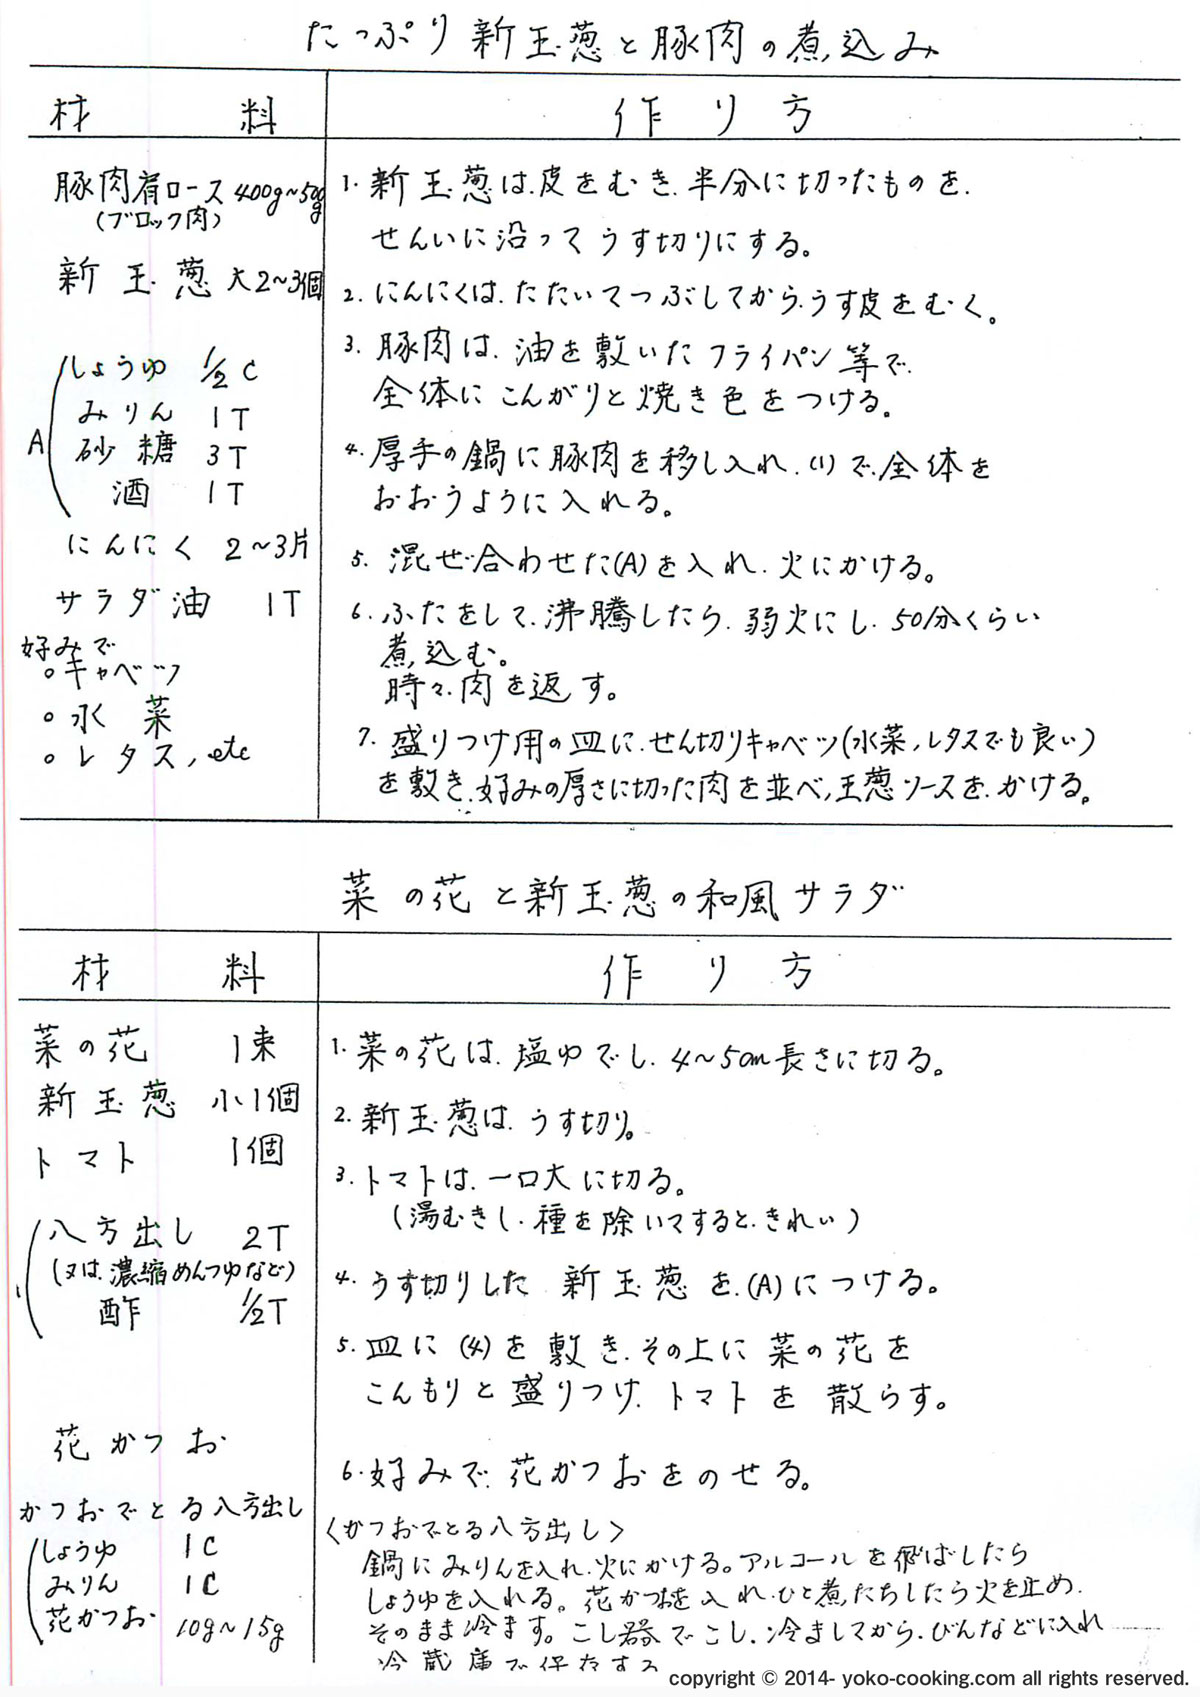 たっぷり新玉葱と豚肉の煮込み
材料
作り方
豚肉肩ロース 400g~500g
(ブロック肉)
新玉葱 大2~3個
A
しょうゆ 1/2C
みりん 1T
砂糖 3T
酒 1T
にんにく 2~3片
サラダ油 1T
好みで
。キャベツ
。水菜
。レタス, etc
1. 新玉葱は、皮をむき、半分に切ったものを、
せんいに沿ってうす切りにする。
2. にんにくは、たたいてつぶしてから、うす皮をむく。
3. 豚肉は、油を敷いたフライパン等で、
全体にこんがりと焼き色をつける。
4. 厚手の鍋に豚肉を移し入れ、(1)で、全体を
おおうように入れる。
5. 混ぜ合わせた(A)を入れ、火にかける。
6. ふたをして、沸騰したら、弱火にし、50分くらい
煮込む。
時々、肉を返す。
7. 盛りつけ用の皿に、せん切りキャベツ(水菜,レタスでも良い)
を敷き、好みの厚さに切った肉を並べ,玉葱ソースを、かける。
菜の花と新玉葱の和風サラダ
材料
作り方
菜の花 1束
新玉葱 小1個
トマト 1個
八方出し 2T
(又は、濃縮めんつゆなど)
酢 1/2T
花かつお
かつおでとる八方出し
しょうゆ 1C
みりん 1C
花かつお 10g~15g
1. 菜の花は、塩ゆでし、4~5cm長さに切る。
2. 新玉葱は、うす切り。
3. トマトは、一口大に切る。
(湯むきし、種を除いてすると、きれい)
4. うす切りした 新玉葱を、(A)につける。
5. 皿に(4)を敷き、その上に菜の花を
こんもりと盛りつけ、トマトを散らす。
6. 好みで、花かつおをのせる。
〈かつおでとる八方出し〉
鍋にみりんを入れ、火にかける。アルコールを飛ばしたら
しょうゆを入れる。花かつおを入れ、ひと煮たちしたら火を止め、
そのまま冷ます。こし器でこし、冷ましてから、びんなどに入れ
冷蔵庫で保存する
copyright © 2014- yoko-cooking.com all rights reserved.